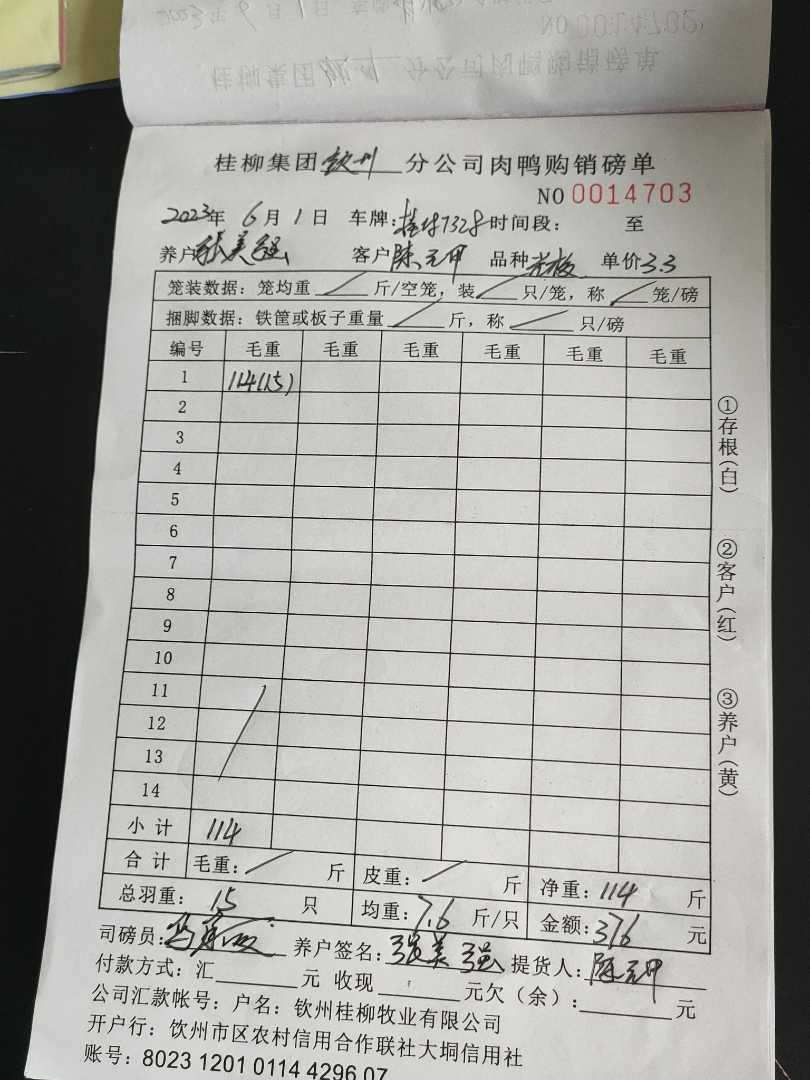 桂柳集团钦州分公司肉鸭购销磅单
NO 0014703
2023年 6月 1日 车牌: 时间段: 至
养户张美强 客户陈元甲 品种 单价3.3
笼装数据：笼均重／斤/空笼，装／只/笼，称／笼/磅
捆脚数据：铁筐或板子重量／斤，称／只/磅
编号 毛重 毛重 毛重 毛重 毛重 毛重
1 114(15)
2
3
4
5
6
7
8
9
10
11
12
13
14
小计 114
合计 毛重：／斤 皮重：／斤 净重：114斤
总羽重：15只 均重：7.6斤/只 金额：376元
司磅员: 养户签名：张美强 提货人：陈元甲
付款方式：汇 元 收现 元欠（余）： 元
公司汇款帐号：户名：钦州桂柳牧业有限公司
开户行：钦州市区农村信用合作联社大垌信用社
账号：8023 1201 0114 4296 07
①存根(白)
②客户(红)
③养户(黄)